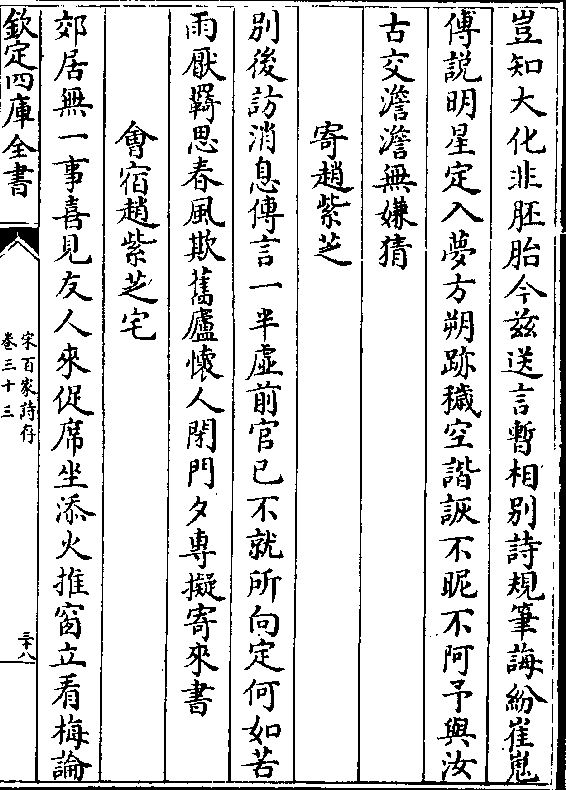 豈知大化非胚胎今兹送言暫相别詩規筆誨紛崔嵬
傅説明星定入夢方朔跡穢空諧詼不昵不阿予與汝
古交澹澹無嫌猜
寄趙紫芝
别後訪消息傳言一半虛前官已不就所向定何如苦
雨厭羇思春風欺舊廬懷人閉門夕專擬寄來書
會宿趙紫芝宅
郊居無一事喜見友人來促席坐添火推窗立看梅論
欽定四庫全書
宋百家詩存
卷三十三
三十八